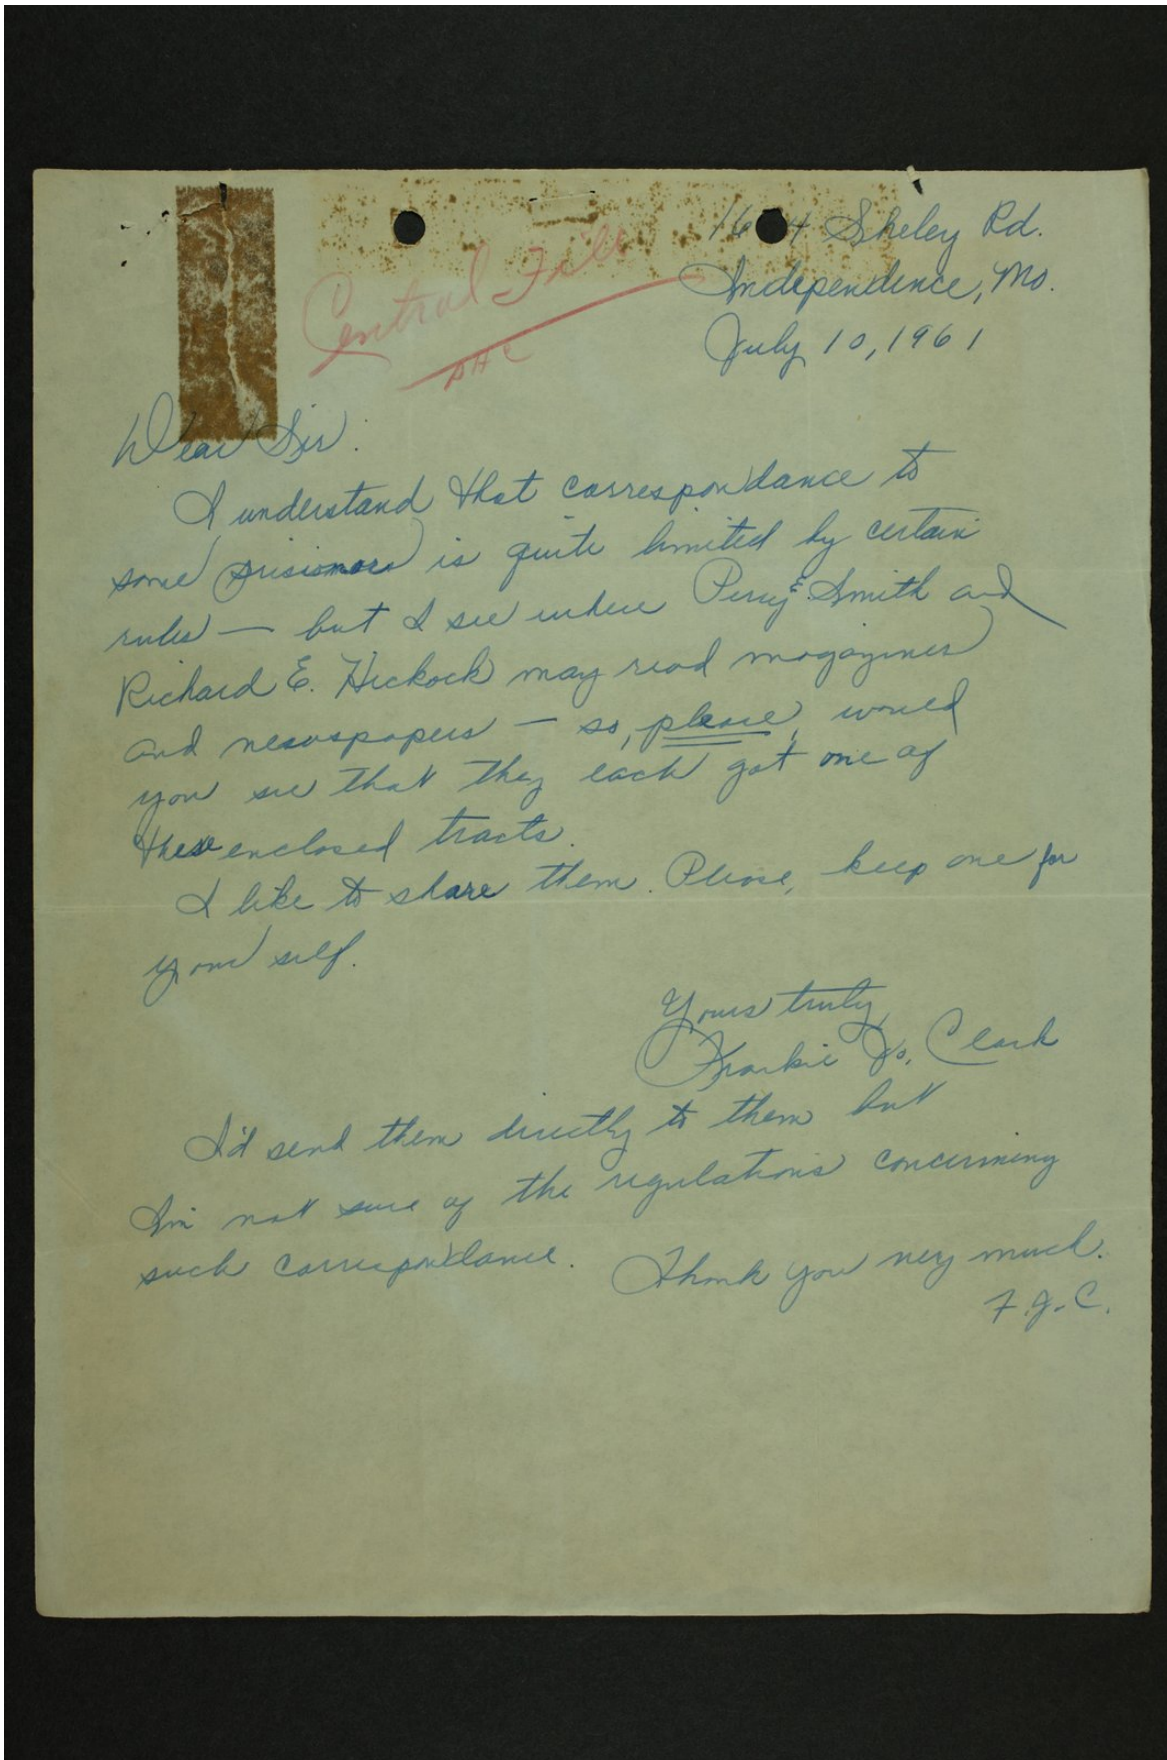 16 4 Sheley Rd.
Independence, Mo.
July 10, 1961
Central File
DHC
Dear Sir:
I understand that correspondance to
some prisioners is quite limited by certain
rules — but I see where Perry E. Smith and
Richard E. Hickock may read magazines
and newspapers — so, please, would
you see that they each got one of
these enclosed tracts.
I like to share them. Please, keep one for
your self.
Yours truly,
Frankie Jo. Clark
I'd send them directly to them but
I'm not sure of the regulations concerning
such correspondance. Thank you very much.
F. J. C.